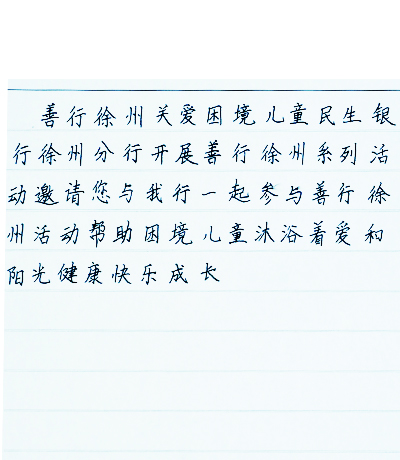 善行徐州关爱困境儿童民生银
行徐州分行开展善行徐州系列活
动邀请您与我行一起参与善行徐
州活动帮助困境儿童沐浴着爱和
阳光健康快乐成长